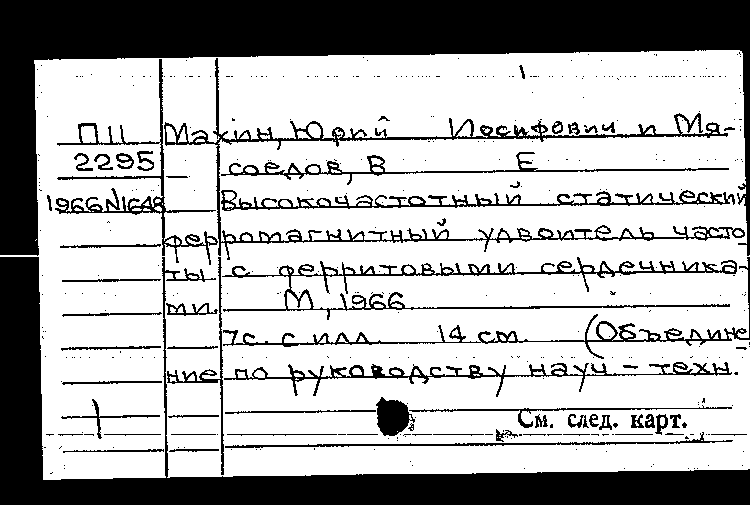 П11 Махин, Юрий Иосифович и Мя-
2295 соедов, В Е
1966N1648 Высокочастотный статический
ферромагнитный удвоитель часто
ты с ферритовыми сердечника-
ми. М, 1966
7с. с илл. 14 см. (Объедине
ние по руководству науч - техн.
См. след. карт.